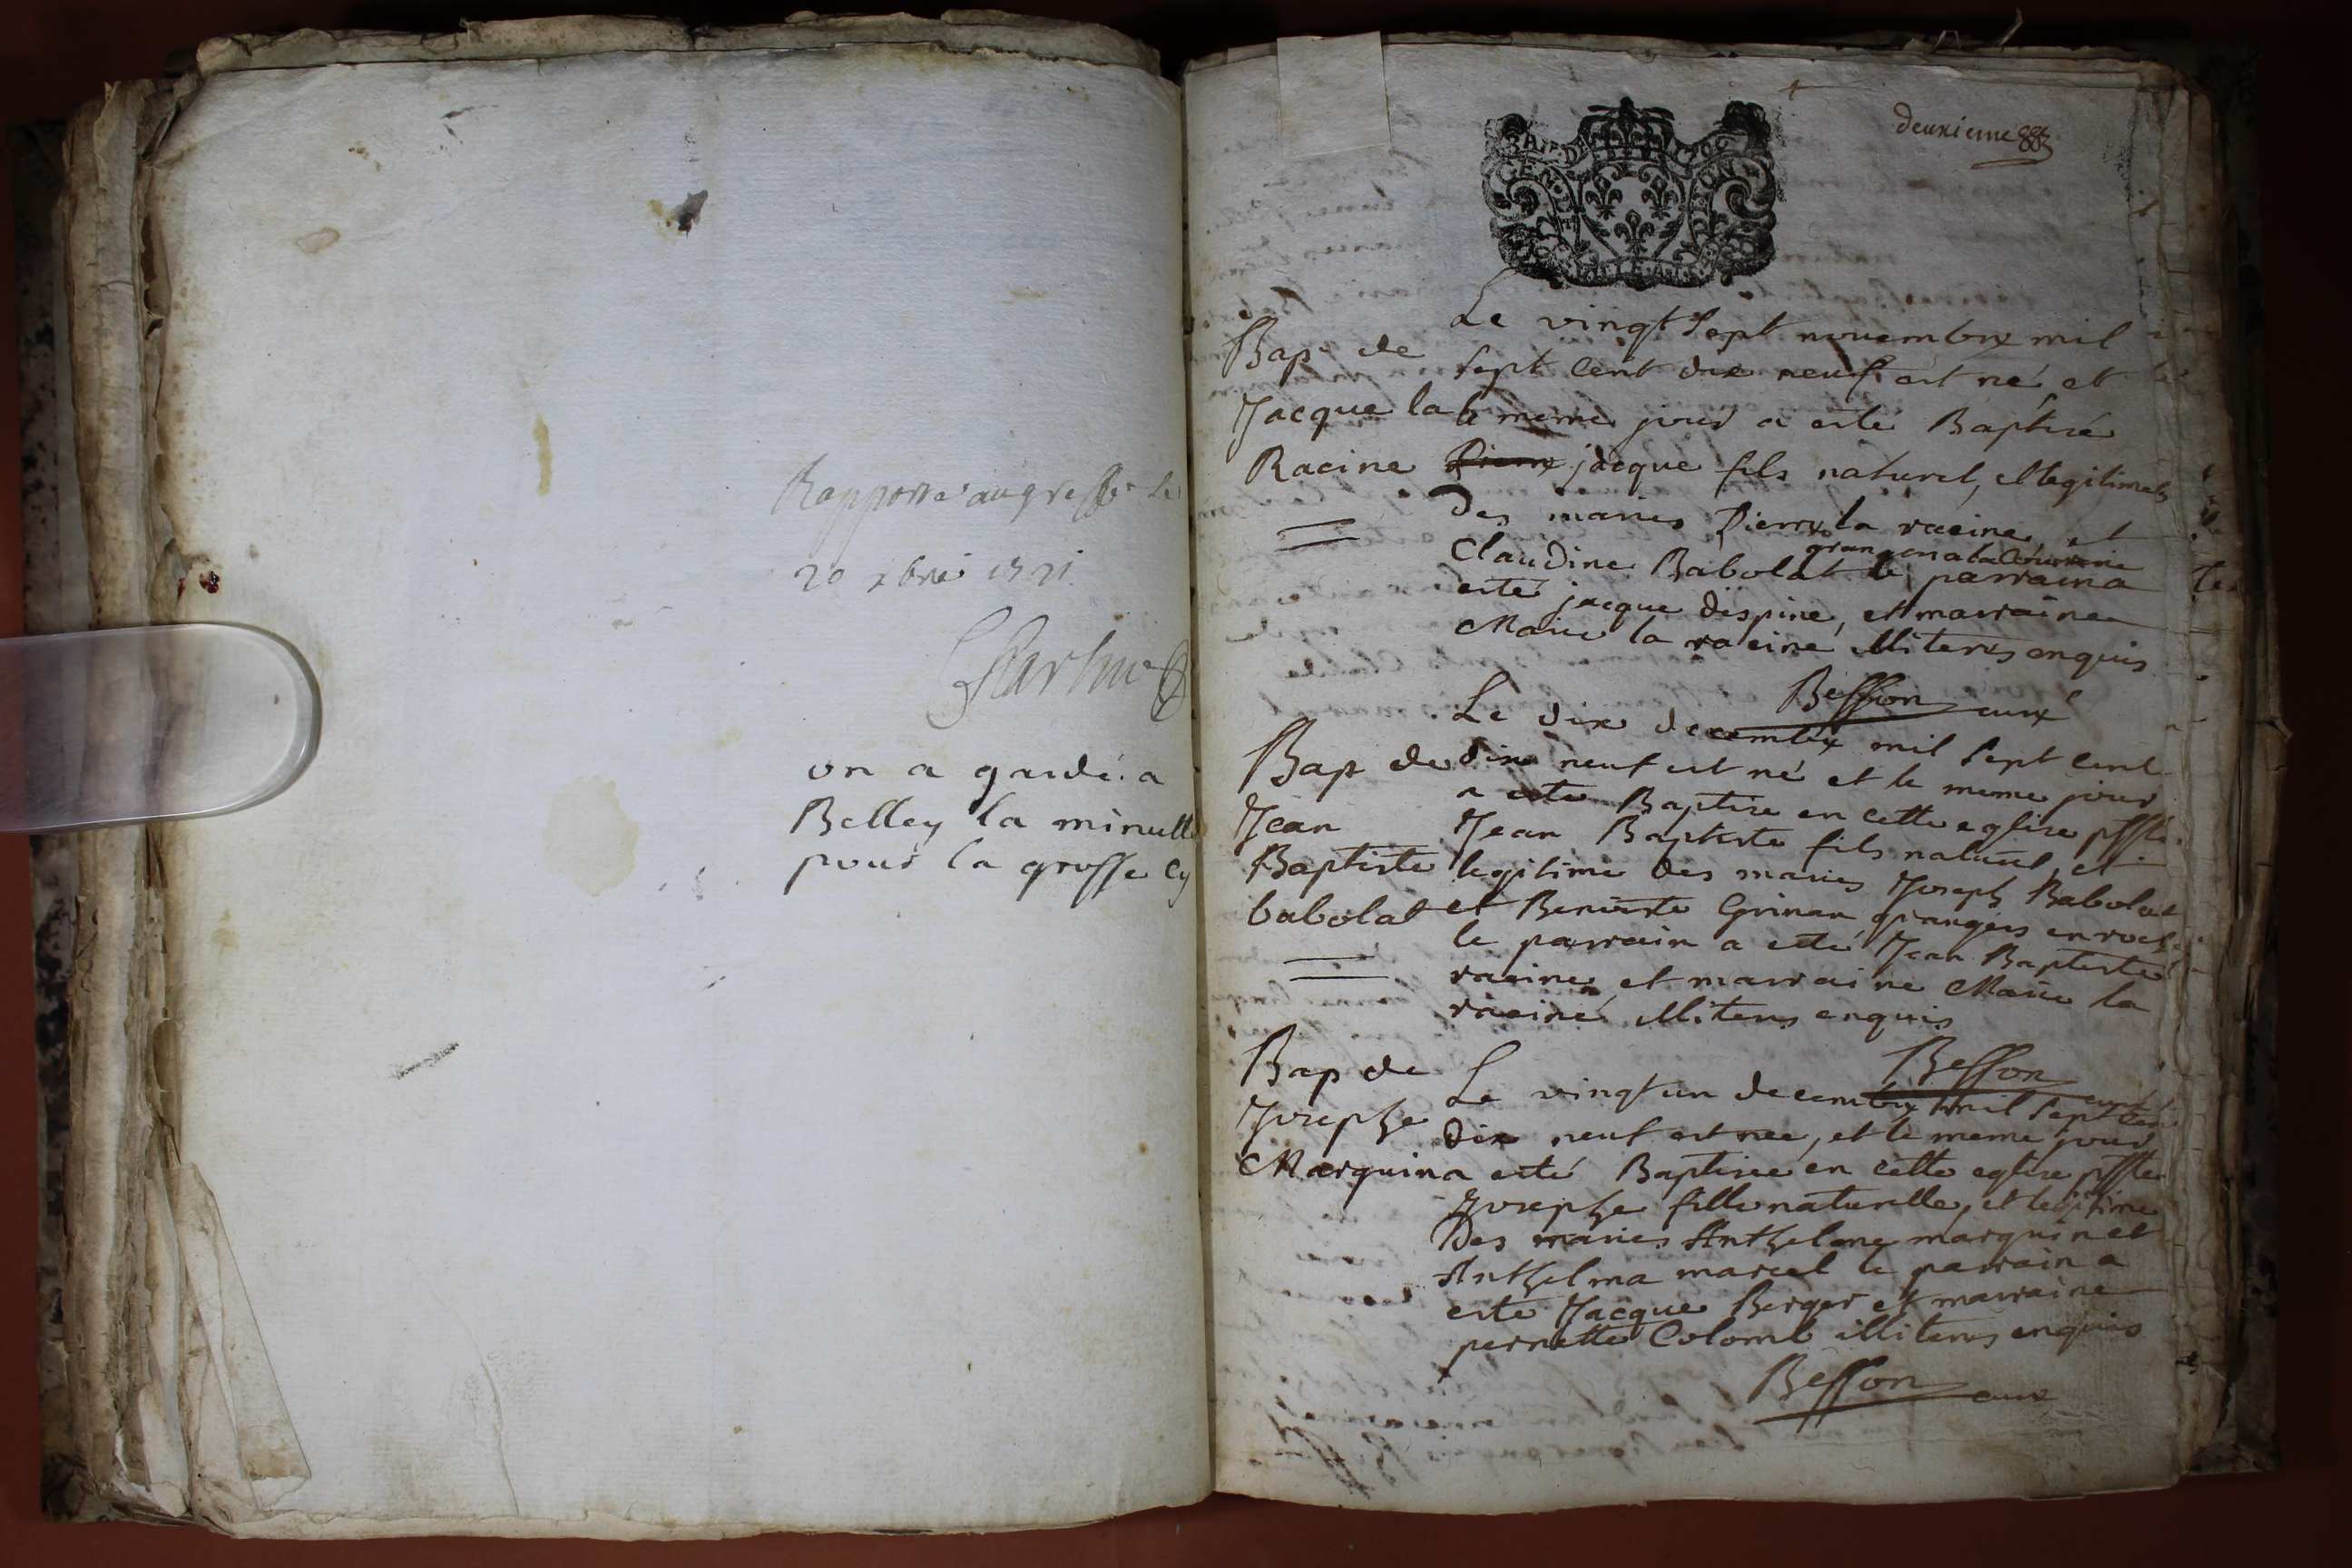 Rapporté au greffe le
20 xbre 1721
on a gardé a
Belley la minutte
pour la grosse cy
deuxieme
GEN
Le vingt sept novembre mil
sept cent dix neuf est né, et
le meme jour a esté Baptisé
jacque fils naturel, et legitime
des maries Pierre la racine, et
Claudine Babolat le parrain a
esté jacque dispine, et marraine
Marie la racine illiteres enquis
Besson curé
Bap de
Jacque la
Racine
Le dix decembre mil sept cent
dix neuf est né et le meme jour
a esté Baptise en cette eglise pnte
Jean Baptiste fils naturel et
legitime des maries Joseph Babolat
et Benoiste Grinan grangers en
le parrain a esté Jean Baptiste
racine, et marraine Marie la
racine illiteres enquis
Besson curé
Bap de
Jean
Baptiste
babolat
Le vingt un decembre mil sept cent
dix neuf est née, et le meme jour
a esté Baptisée en cette eglise pnte
Josephe fille naturelle, et legitime
Des maries Anthelme marquin et
Anthelma marcel le parrain a
esté Jacque Berger et marraine
pernette Colomb illiteres enquis
Besson curé
Bap de
Josephe
Marquin